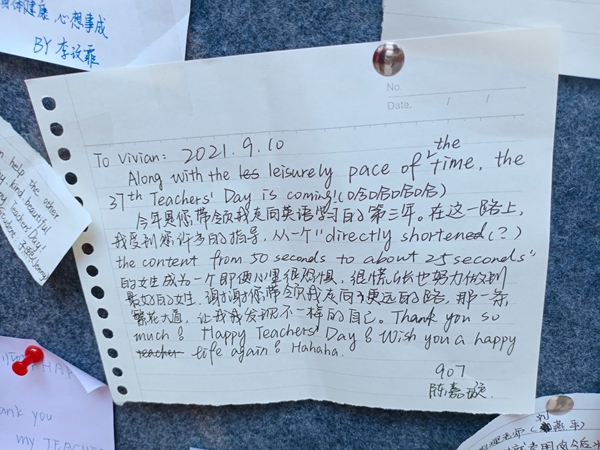 身体健康 心想事成
BY 李
No.
Date. / /
To Vivian: 2021.9.10
Along with the les leisurely pace of the time, the
37th Teachers' Day is coming!(哈哈哈哈)
今年是您带领我走向英语学习的第三年。在这一路上,
我受到您许多的指导,从一个"directly shortened(?)
the content from 50 seconds to about 25 seconds"
的女生成为一个即便心里很恐惧、很慌张也努力做到
最好的女生。谢谢您带领我走向了更远的路,那一条
繁花大道,让我发现不一样的自己。Thank you so
much! Happy Teachers' Day! Wish you a happy
teacher life again! Hahaha.
907
陈嘉
help the other
kind beautiful
Teachers' Day!
ank you
my TEACH